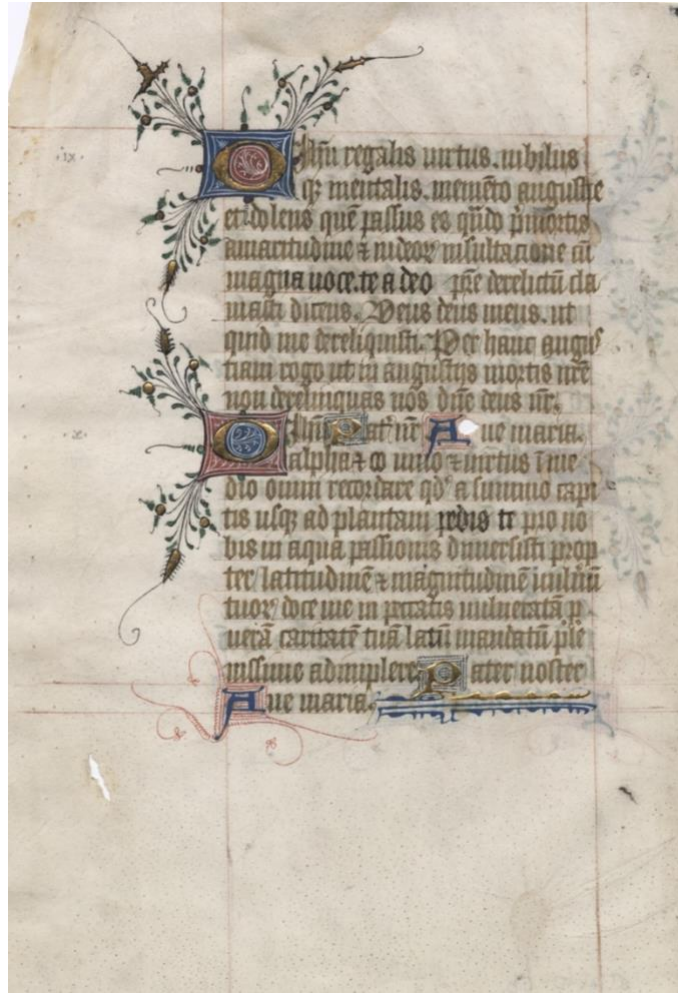 ·ix·
O Jhū regalis uirtus. iubilus
q̄ mentalis. memēto angustie
et doloris quē passus es qn̄do p̄ mortis
amaritudine ⁊ iudeoꝝ insultacione cū
magna uoce. te a deo pr̄e derelictū cla
masti dicens. Deus deus meus. ut
quid me dereliquisti. Per hanc angus
tiam rogo ut in angustijs mortis meē
non derelinquas nos dn̄e deus nr̄.
·x·
O Jhū Pat᷑ nr̄ Aue maria.
alpha ⁊ ω uita ⁊ uirtus ī me
dio omn̄i recordare qd̓ a summo capi
tis usqꝫ ad plantam pedis te pro no
bis in aqua passionis dimersisti prop
ter latitudinē ⁊ magnitudinē uulnerū
tuoꝝ doce me in peccatis uulneratā ꝑ
uerā caritatē tuā latū mandatū ple
nissime adimplere. Pater noster
Aue maria.